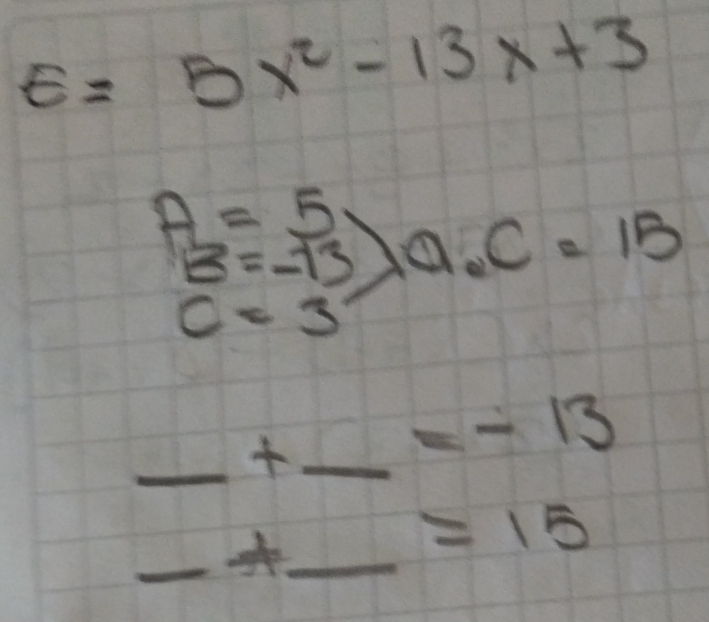 E = 5x² - 13x + 3
A = 5
B = -13 > a.C = 15
C = 3
__ + __ = - 13
__ + __ = 15